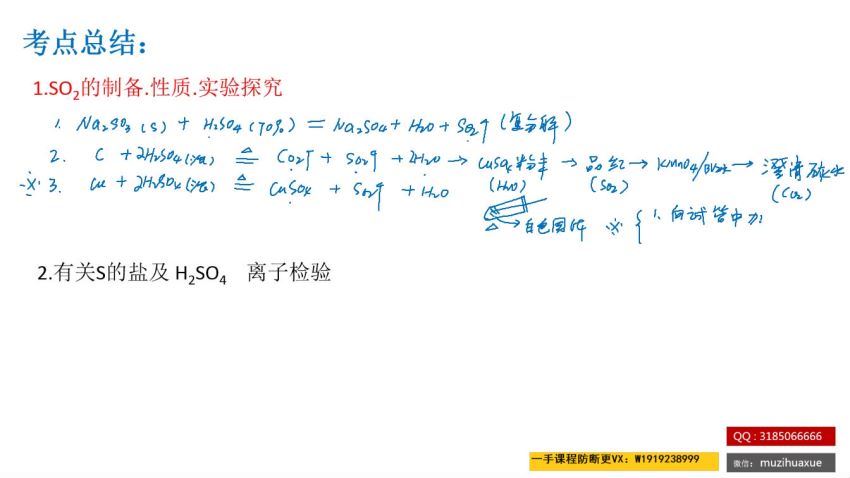 考点总结：
1.SO₂的制备.性质.实验探究
1. Na₂SO₃ (s) + H₂SO₄ (70%) = Na₂SO₄ + H₂O + SO₂↑ (复分解)
2. C + 2H₂SO₄(浓) ≜ CO₂↑ + SO₂↑ + 2H₂O → CuSO₄粉末 → 品红 → KMnO₄/Br₂水 → 澄清石灰水
(H₂O) (SO₂) (CO₂)
※ 3. Cu + 2H₂SO₄(浓) ≜ CuSO₄ + SO₂↑ + H₂O
△ → 白色固体 ※ { 1. 向试管中加
2.有关S的盐及 H₂SO₄ 离子检验
QQ：3185066666
一手课程防断更VX：W1919238999
微信： muzihuaxue